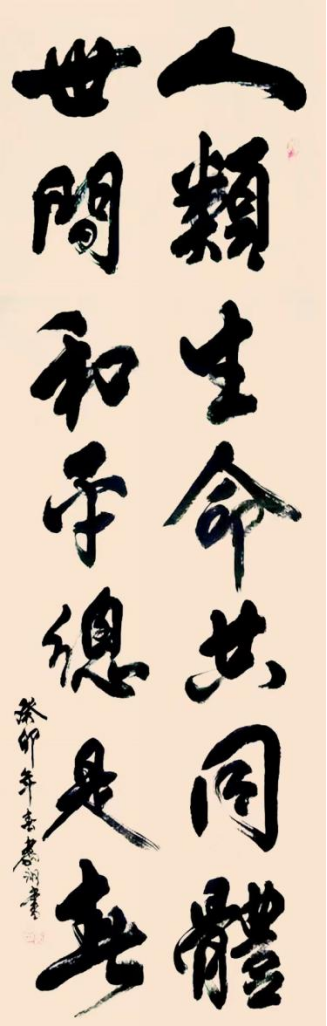 人類生命共同體
世間和平總是春
癸卯年春書